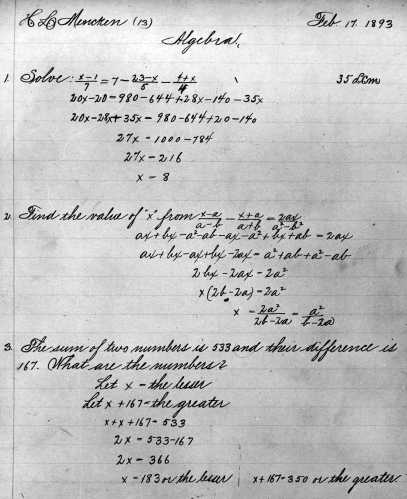 H L Mencken (13) Feb. 17. 1893
Algebra.
1. Solve: (x-1)/7 = 7 - (23-x)/5 - (4+x)/4 35 Lem
20x-20 = 980-644+28x-140-35x
20x-28x+35x = 980-644+20-140
27x = 1000-784
27x = 216
x = 8
2. Find the value of "x" from (x-a)/(a-b) - (x+a)/(a+b) = 2ax/(a²-b²)
ax+bx-a²-ab-ax-a²+bx+ab = 2ax
ax+bx-ax+bx-2ax = a²+ab+a²-ab
2bx-2ax = 2a²
x(2b-2a) = 2a²
x = 2a²/(2b-2a) = a²/(b-2a)
3. The sum of two numbers is 533 and their difference is
167. What are the numbers?
Let x = the lesser
Let x+167 = the greater
x+x+167 = 533
2x = 533-167
2x = 366
x = 183 or the lesser x+167 = 350 or the greater